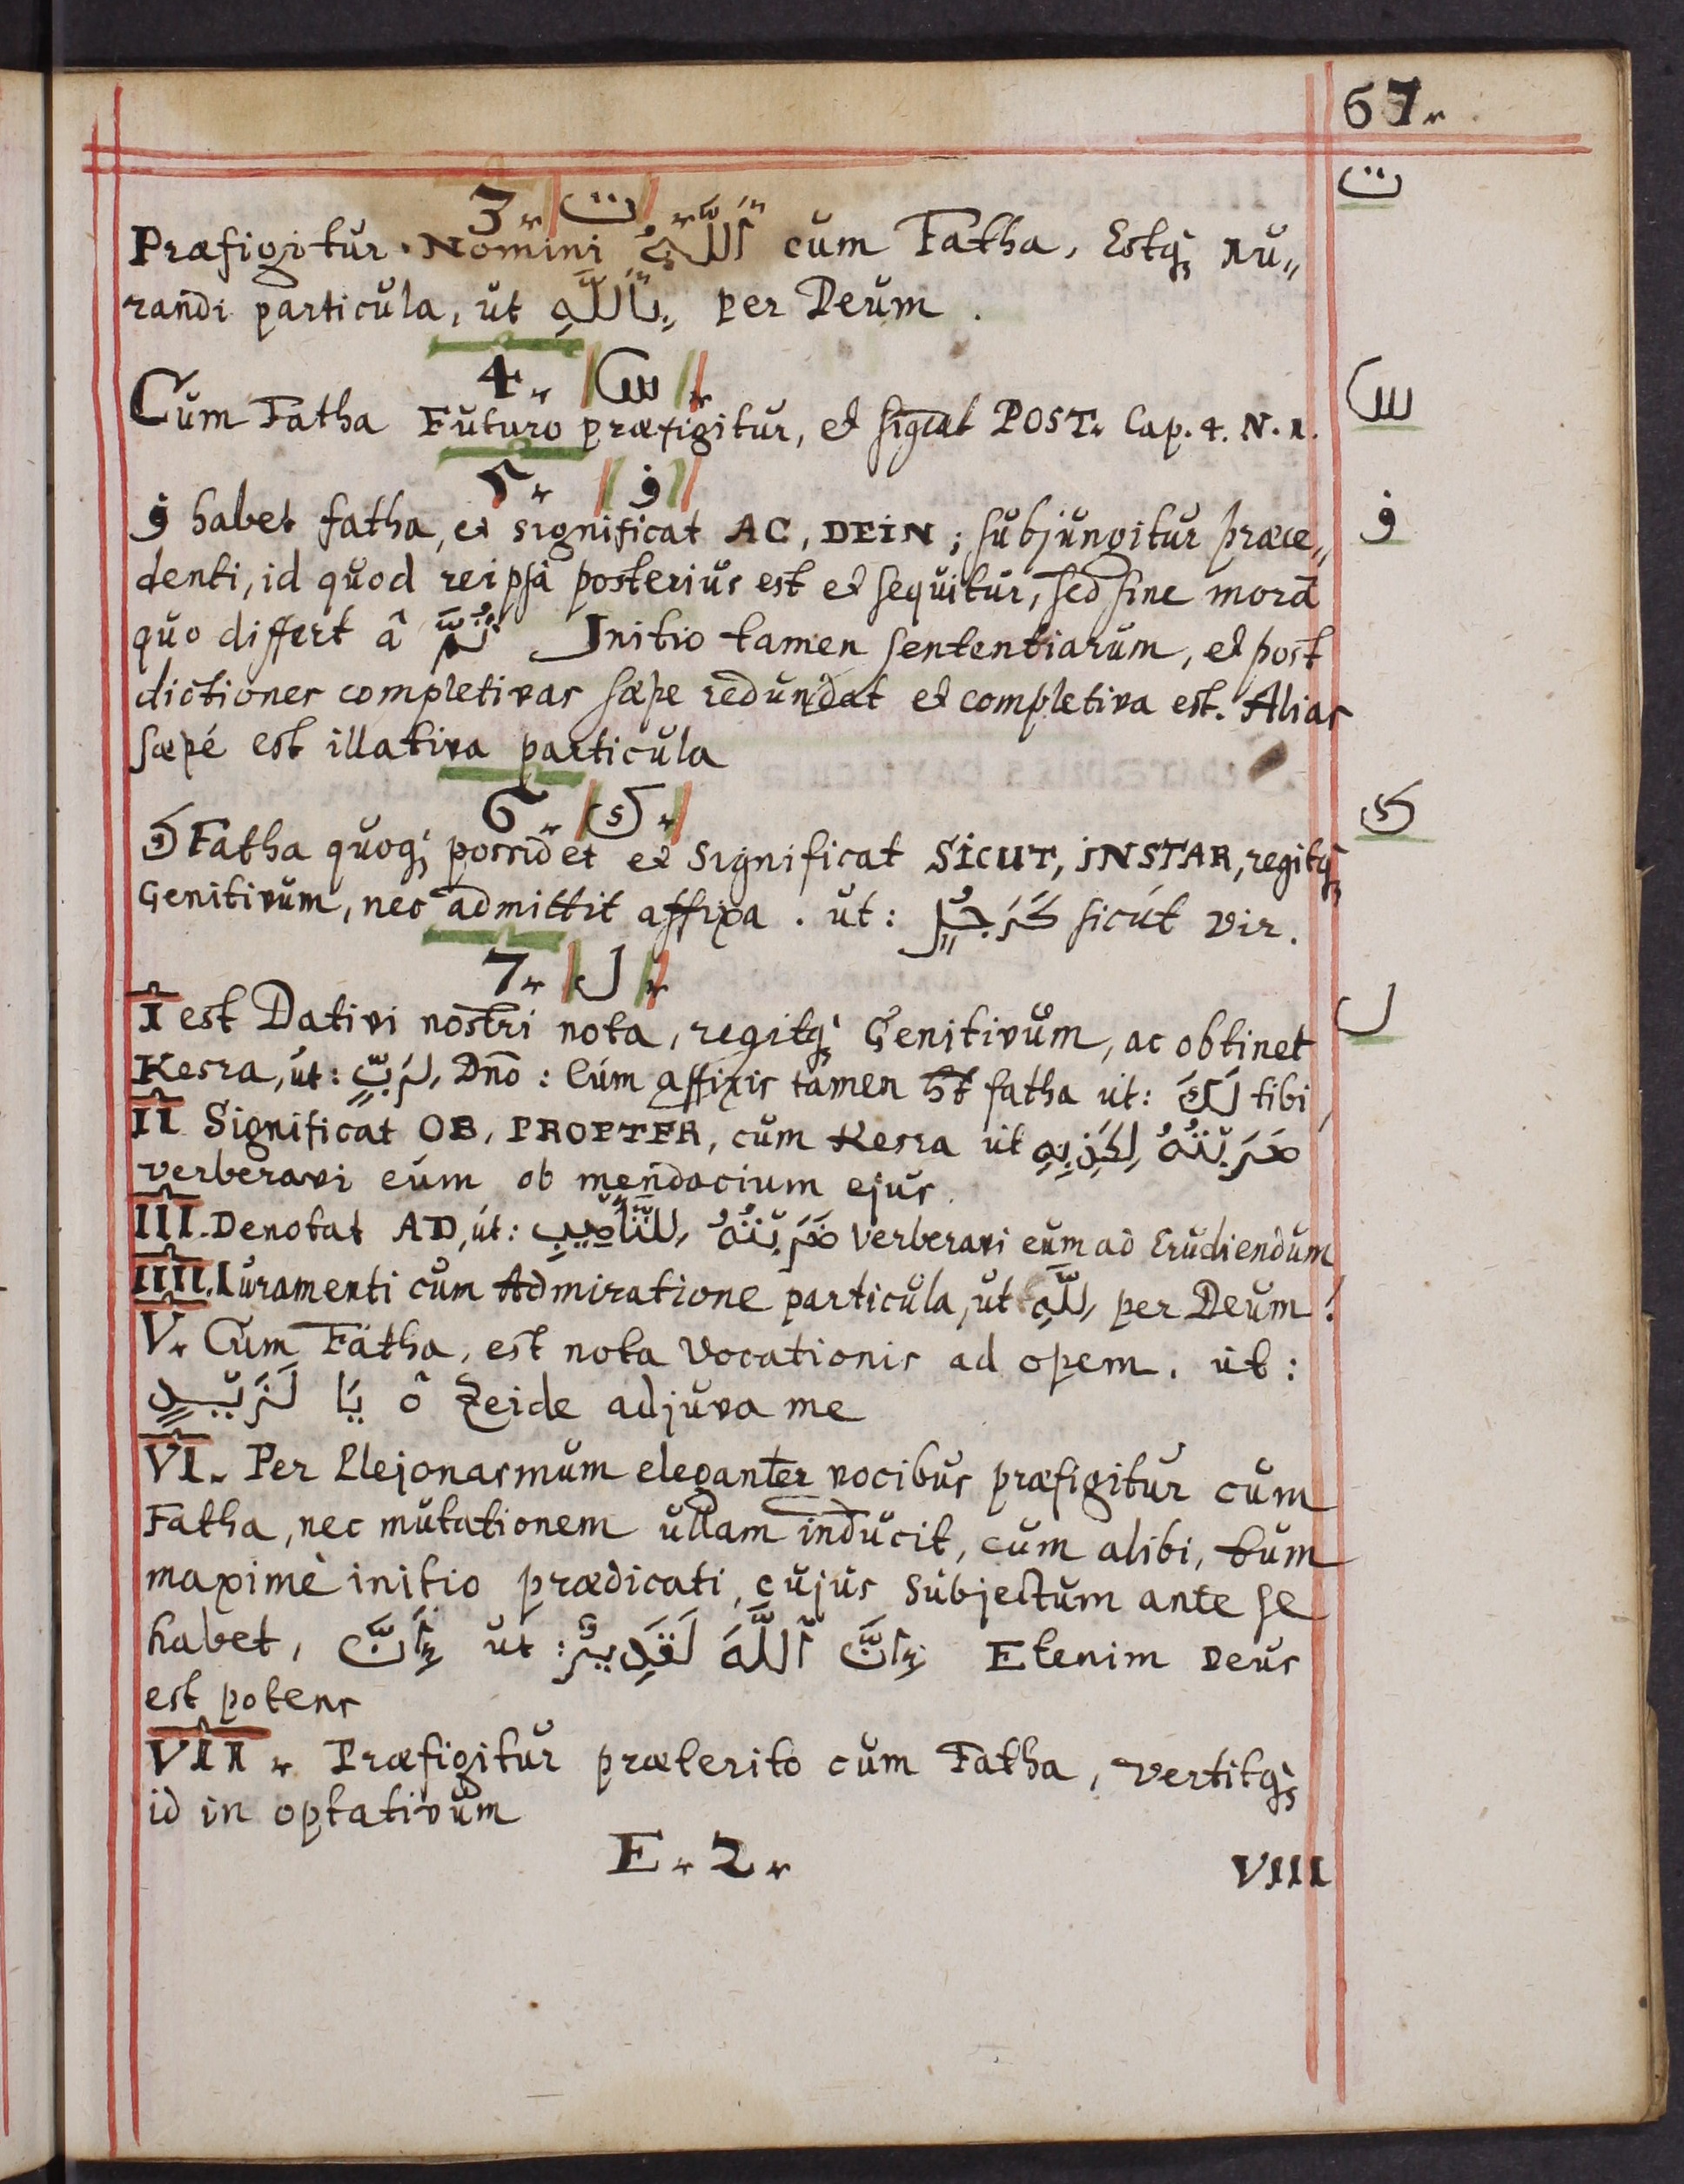 67.
ت
3. ت
Præfigitur Nomini اَللّٰهُ cum Fatha, Estq; Iu„
randi particula, ut تَاللّٰهِ per Deum.
4. س
س
Cum Fatha Futuro præfigitur, et sigcat POST. Cap. 4. N. 1.
5. ف
ف
ف habet fatha, et significat AC, DEIN; subjungitur præce„
denti, id quod reipsâ posterius est et sequitur, sed sine morâ
quo differt â ثُمَّ Initio tamen sententiarum, et post
dictiones completivas sæpe redundat et completiva est. Alias
sæpé est illativa particula
6. ك
ك
ك Fatha quoq; possidet et significat SICUT, INSTAR, regitq;
Genitivum, nec admittit affixa. ut: كَرَجُلٍ sicút vir.
7. ل
ل
I est Dativi nostri nota, regitq; Genitivum, ac obtinet
Kesra, út: لِرَبٍّ Dno: Cúm affixis tamen ht fatha út: لَكَ tibi
II Significat OB, PROPTER, cum Kesra út ضَرَبْتُهُ لِكَذِبِهِ
verberavi eum ob mendacium ejus.
III. Denotat AD, út: ضَرَبْتُهُ لِلتَّاَدِيبِ verberavi eum ad Erudiendum
IIII. Iuramenti cum Admiratione particula, ut لِلّٰهِ per Deum!
V. Cum Fatha, est nota Vocationis ad opem. út:
يَا لَزَيْدٍ ô Zeide adjuva me
VI. Per Plejonasmum eleganter vocibus præfigitur cum
Fatha, nec mutationem ullam inducit, cum alibi, tum
maximè initio prædicati, cujus subjectum ante se
habet, إِنَّ ut: إِنَّ ٱللّٰهَ لَقَدِيرٌ Etenim Deus
est potens
VII. Præfigitur præterito cum Fatha, vertitq;
id in optativum
E. 2.
VIII